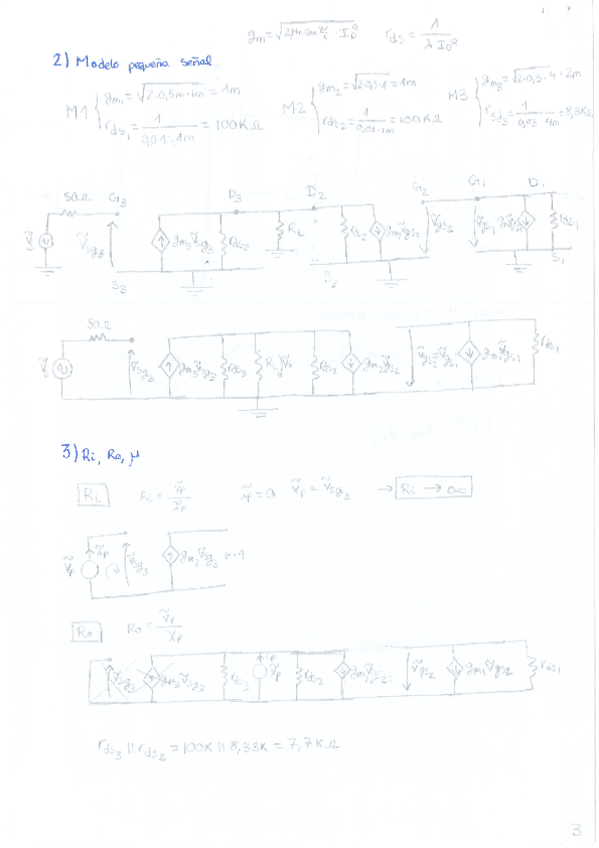 gm = √(2μnCox W/L · I_D^Q)   rds = 1/(λ I_D^Q)
2) Modelo pequeña señal
M1 { gm1 = √(2·0,5m·1m) = 1m
rds1 = 1/(0,01·1m) = 100KΩ
M2 { gm2 = √(2·0,5·1) = 1m
rds2 = 1/(0,01·1m) = 100KΩ
M3 { gm3 = √(2·0,5·4) = 2m
rsd3 = 1/(0,03·4m) = 8,3KΩ
50Ω G3 D3 D2 G2 G1 D1
ṽsg3 gm3ṽsg3 rds3 RL rds2 gm2ṽgs2 ṽgs2 ṽgs1 gm1ṽgs1 rds1
S3 S2 S1
50Ω
ṽsg3 gm3ṽsg3 rds3 RL rds2 gm2ṽgs2 ṽgs2=ṽgs1 gm1ṽgs1 rds1
3) Ri, Ro, μ
Ri   Ri = ṽp/ĩp   ĩp = 0   ṽp = ṽsg3   → Ri → ∞
ṽp ĩp ṽsg3 gm3ṽsg3
Ro   Ro = ṽp/ĩp
ṽsg3 gm3ṽsg3 rds3 ĩp ṽp rds2 gm2ṽgs2 ṽgs2 gm1ṽgs2 rds1
rds3 || rds2 = 100K || 8,33K = 7,7KΩ
3